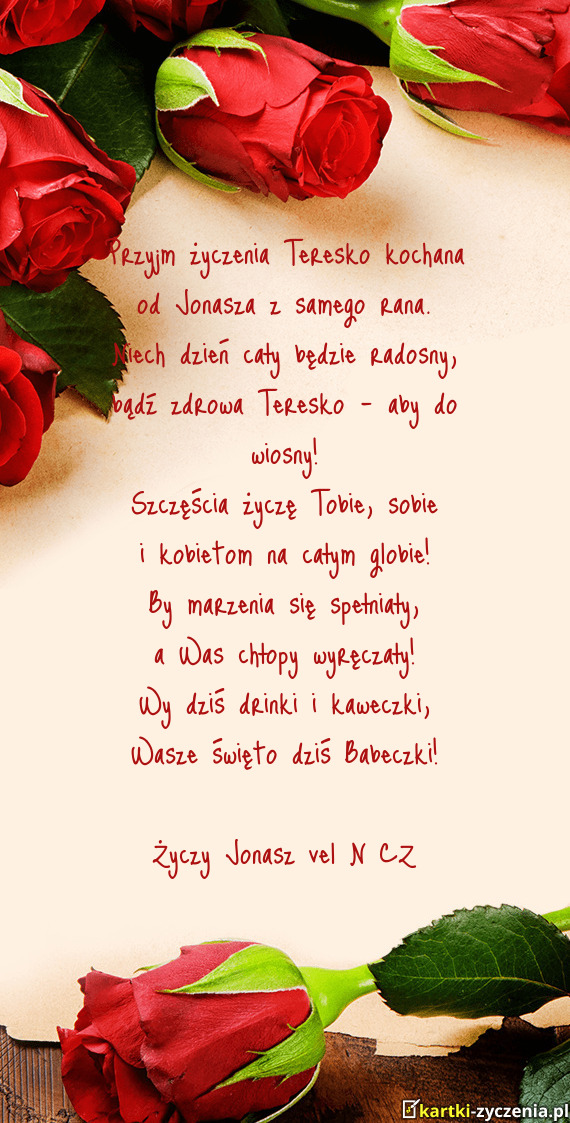 Przyjm życzenia Teresko kochana
od Jonasza z samego rana.
Niech dzień cały będzie radosny,
bądź zdrowa Teresko - aby do
wiosny!
Szczęścia życzę Tobie, sobie
i kobietom na całym globie!
By marzenia się spełniały,
a Was chłopy wyręczały!
Wy dziś drinki i kaweczki,
Wasze święto dziś Babeczki!
Życzy Jonasz vel N CZ
kartki-zyczenia.pl